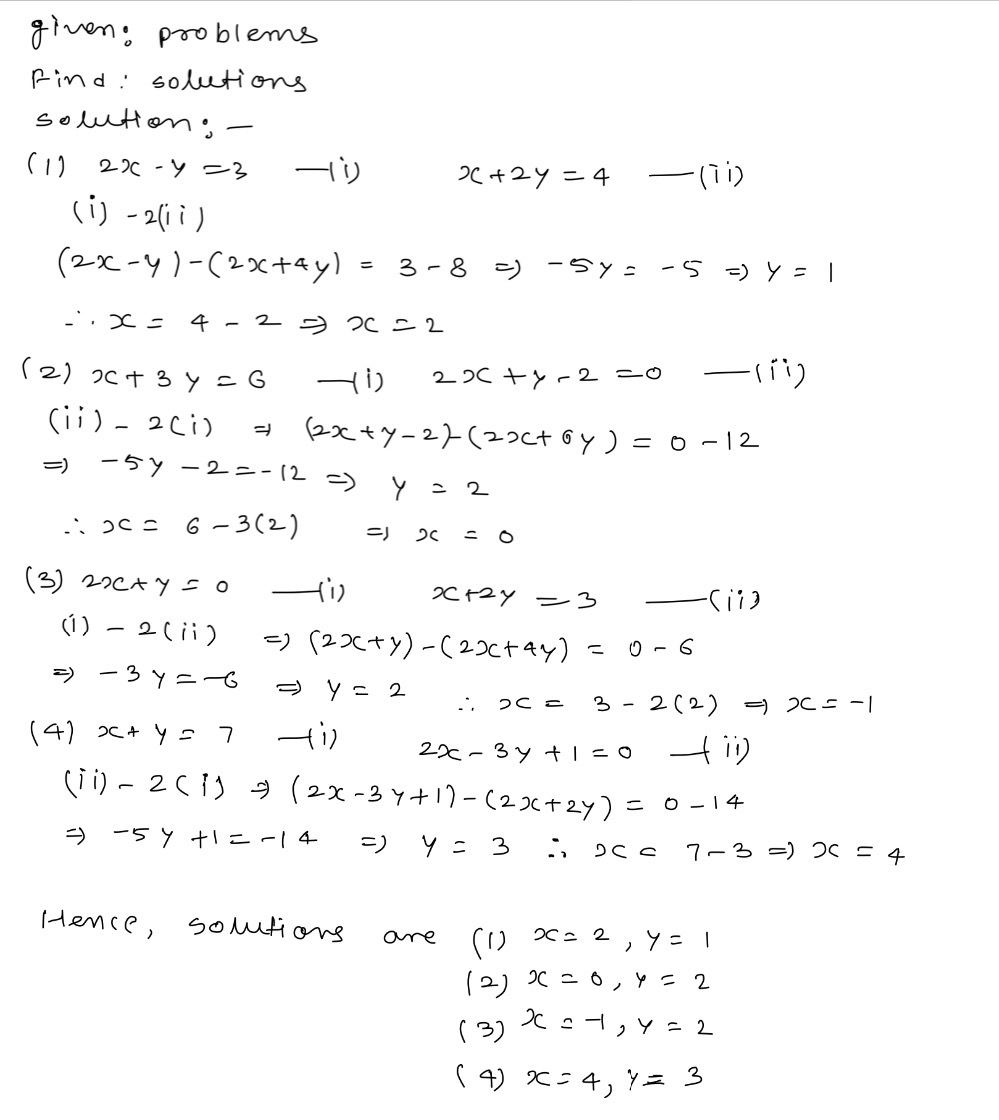 given: problems
Find: solutions
solution: —
(1) 2x - y = 3 —(i) x + 2y = 4 —(ii)
(i) - 2(ii)
(2x - y) - (2x + 4y) = 3 - 8 ⇒ -5y = -5 ⇒ y = 1
∴ x = 4 - 2 ⇒ x = 2
(2) x + 3y = 6 —(i) 2x + y - 2 = 0 —(ii)
(ii) - 2(i) ⇒ (2x + y - 2) - (2x + 6y) = 0 - 12
⇒ -5y - 2 = -12 ⇒ y = 2
∴ x = 6 - 3(2) ⇒ x = 0
(3) 2x + y = 0 —(i) x + 2y = 3 —(ii)
(i) - 2(ii) ⇒ (2x + y) - (2x + 4y) = 0 - 6
⇒ -3y = -6 ⇒ y = 2 ∴ x = 3 - 2(2) ⇒ x = -1
(4) x + y = 7 —(i) 2x - 3y + 1 = 0 —(ii)
(ii) - 2(i) ⇒ (2x - 3y + 1) - (2x + 2y) = 0 - 14
⇒ -5y + 1 = -14 ⇒ y = 3 ∴ x = 7 - 3 ⇒ x = 4
Hence, solutions are (1) x = 2, y = 1
(2) x = 0, y = 2
(3) x = -1, y = 2
(4) x = 4, y = 3